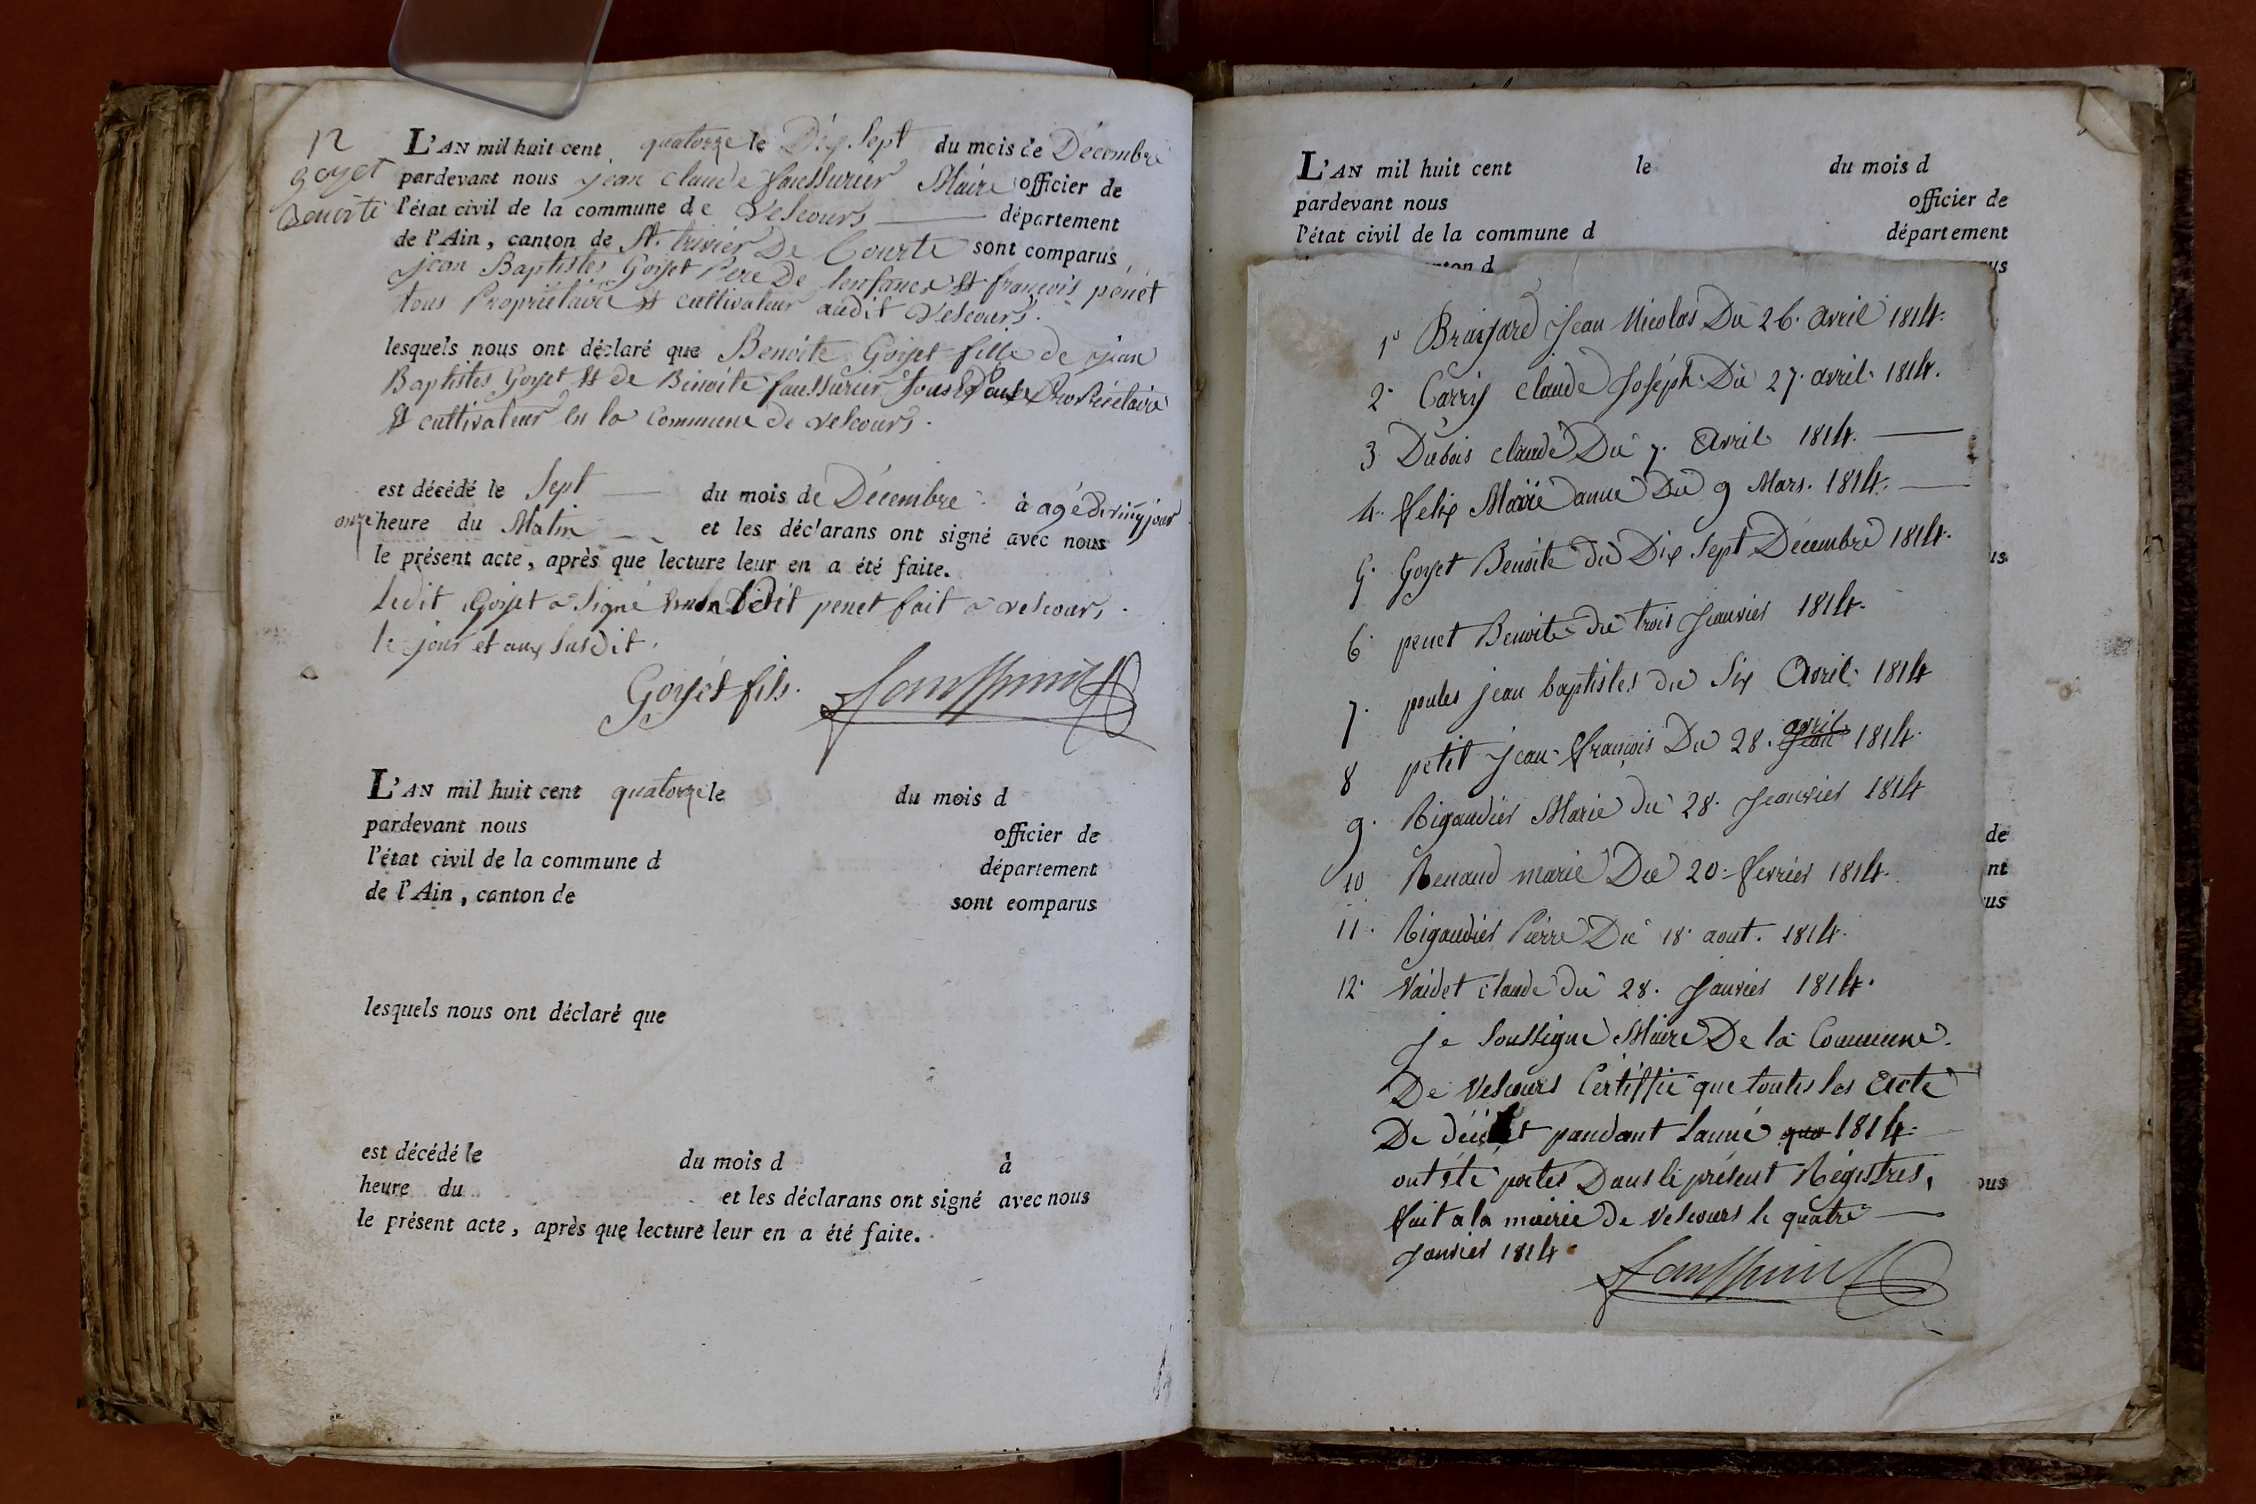 12
goyet
Benoite
L'AN mil huit cent quatorze le Dix Sept du mois de Décembre
pardevant nous jean claude faussurier Maire officier de
l'état civil de la commune de Velcours département
de l'Ain, canton de St. trivier De Courte sont comparus
jean Baptistes Goyet Pere De lenfance & françois penet
tous Propriétaire & cultivateur audit Velcours.
lesquels nous ont déclaré que Benoite Goyet fille de jean
Baptistes Goyet & de Benoite faussurier tous Propriétaire
& cultivateur en la Commune de velcours.
est décédé le Sept du mois de Décembre à agé de vingt jour
onze heure du Matin et les déclarans ont signé avec nous
le présent acte, après que lecture leur en a été faite.
ledit Goyet a Signé ledit penet fait a velcours.
le jour et aux susdit.
Goyet fils. faussurier
L'AN mil huit cent quatorze le du mois d
pardevant nous officier de
l'état civil de la commune d département
de l'Ain, canton de sont eomparus
lesquels nous ont déclaré que
est décédé le du mois d à
heure du et les déclarans ont signé avec nous
le présent acte, après que lecture leur en a été faite.
L'AN mil huit cent le du mois d
pardevant nous officier de
l'état civil de la commune d département
1° Branjard Jean Nicolas Du 26. avril 1814.
2. Carry claude Joséph Du 27. avril 1814.
3 Dubois claude Du 7. Avril 1814.
4. felix Marie anne Du 9 Mars. 1814.
5. Goyet Benoite du Dix Sept Décembre 1814.
6. penet Benoite du trois Jeanvier 1814.
7. poules jean baptistes du Six Avril 1814
8 petit jean françois Du 28. avril 1814.
9. Rigaudier Marie du 28. Jeanvier 1814
10 Renaud marie Du 20. fevrier 1814.
11. Rigaudier Pierre Du 18. aout. 1814.
12. Vaidet claude du 28. Janvier 1814.
je Soussigné Maire De la Commune
De Velcours Certiffie que toutes les Acte
De décet pandant lanné quo 1814
ont été portes Dans le présent Régistres,
fait a la mairie de Velcours le quatre
Janvier 1814
faussurier